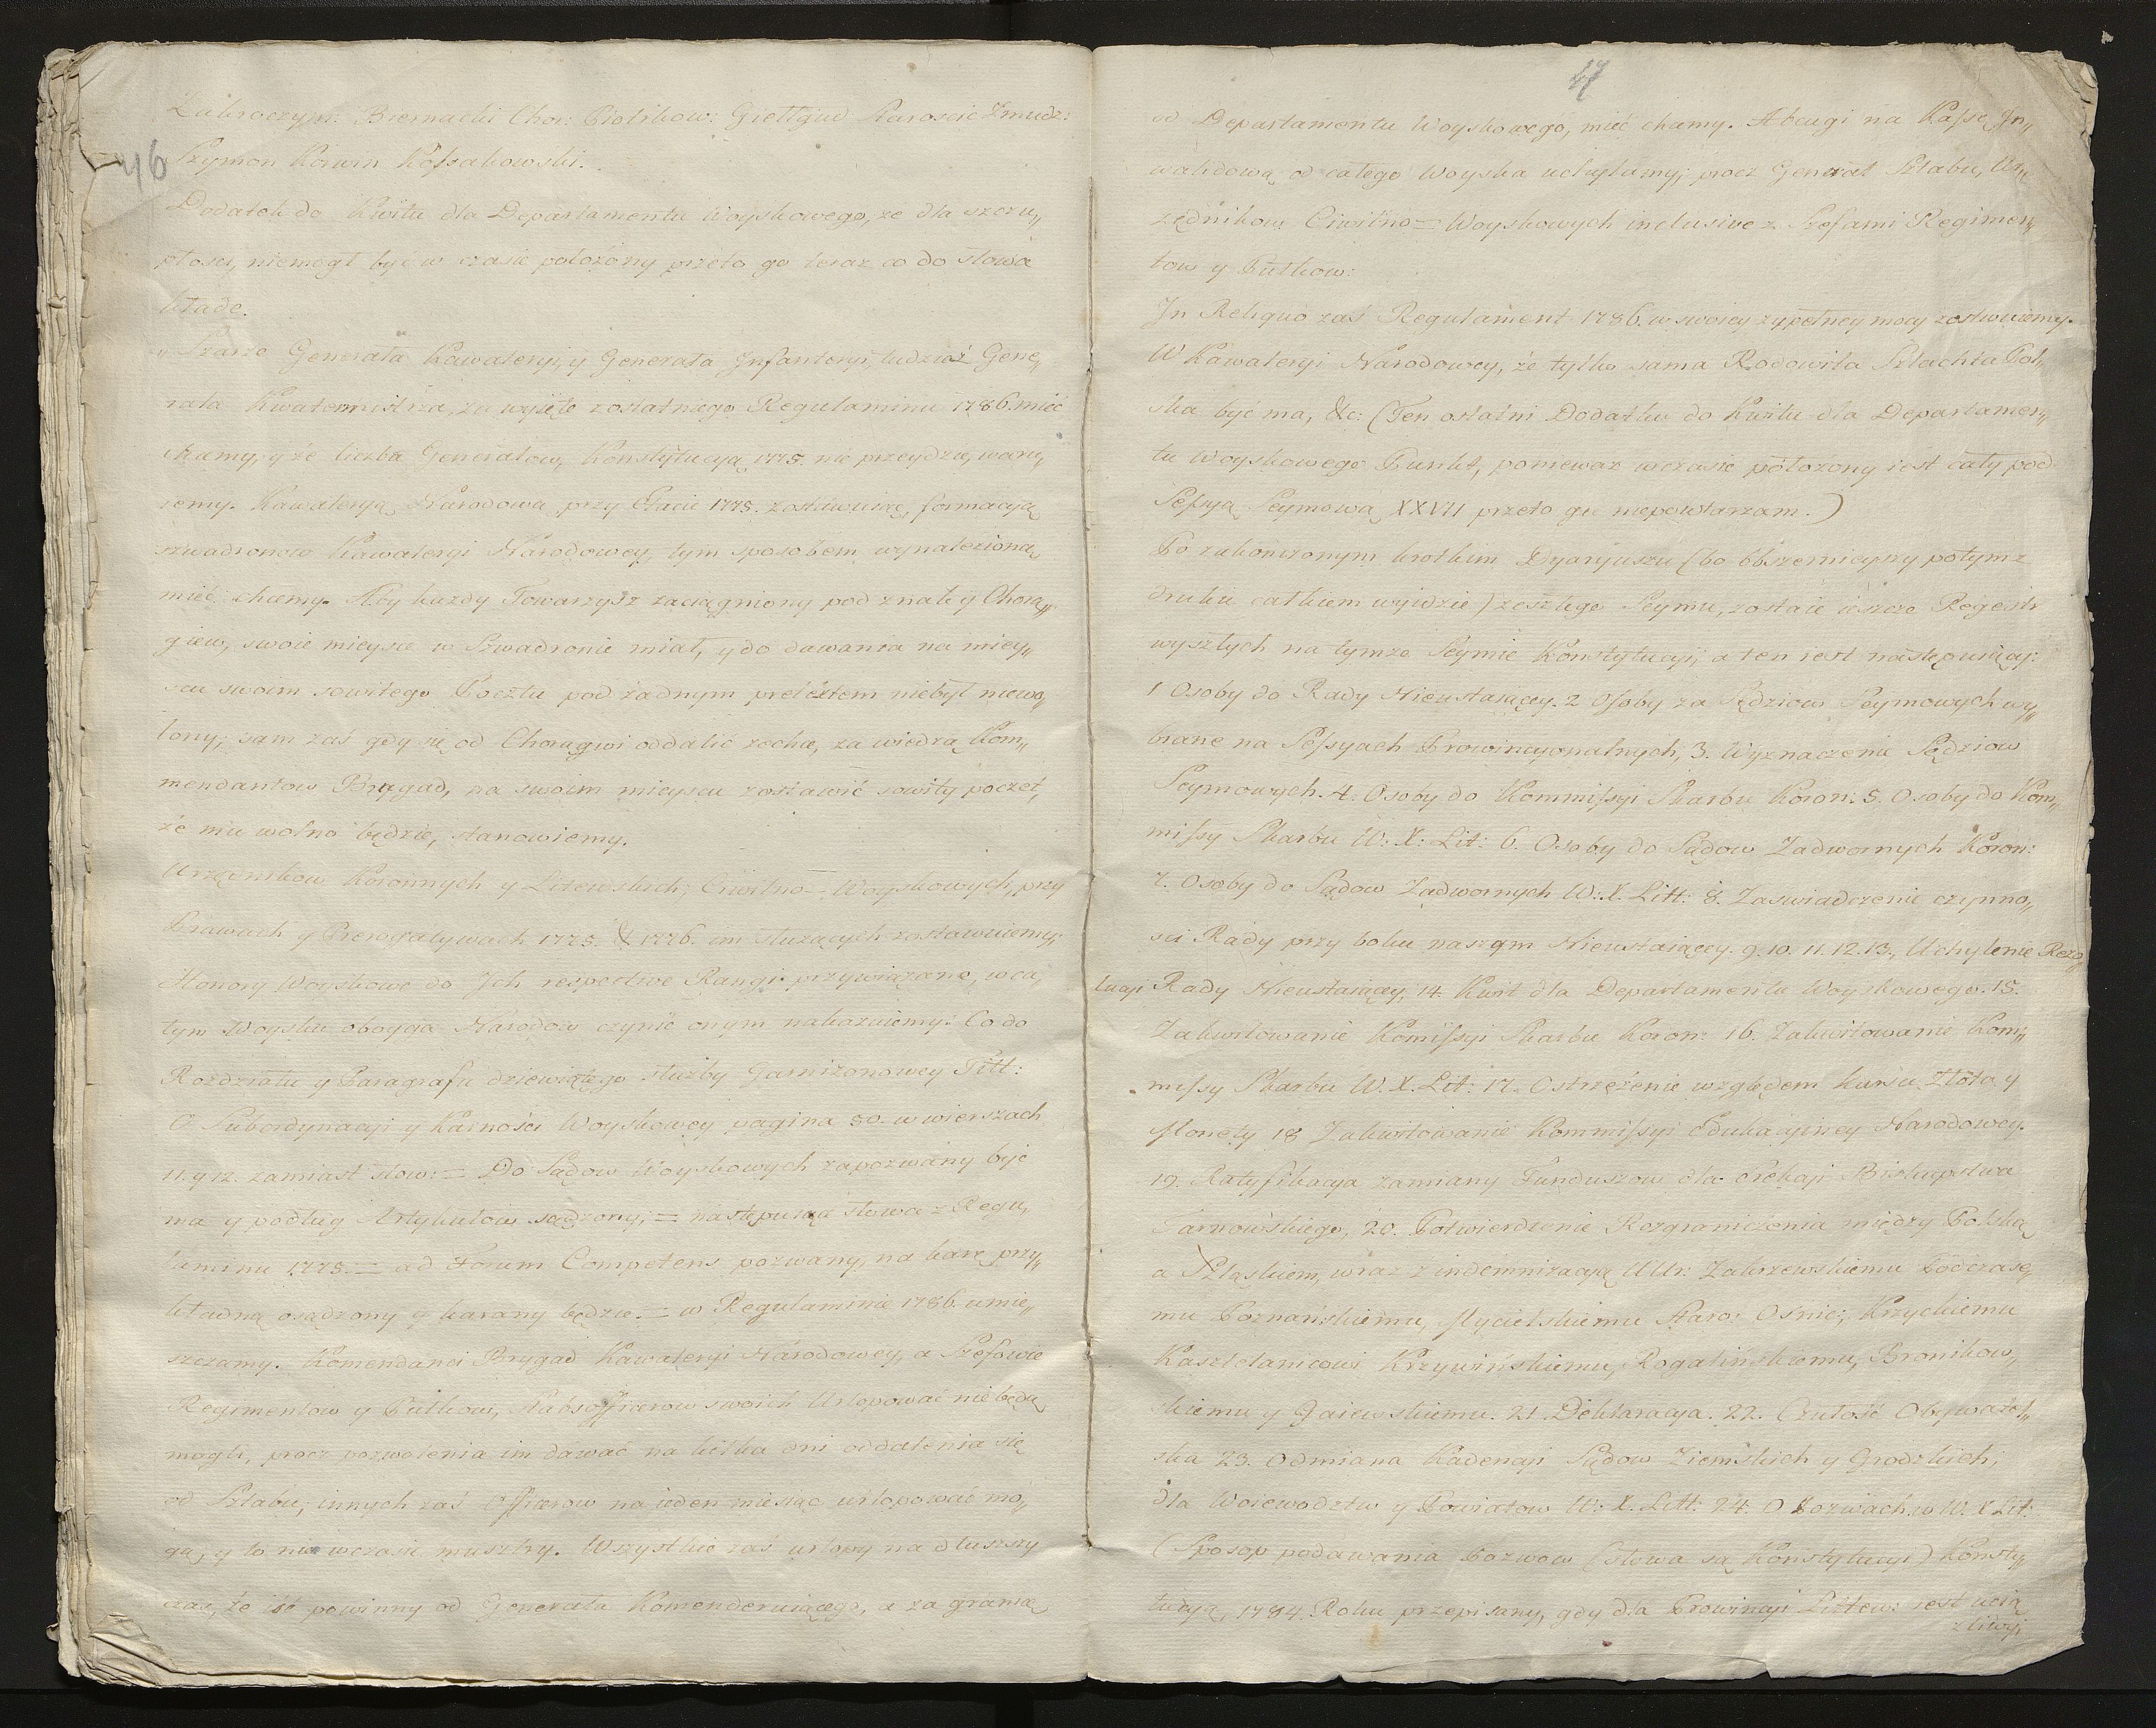 46
Zakroczym: Biernacki Chor: Piotrkow: Giełgud Starosćic Zmudz:
Szymon Korwin Kossakowski.
Dodatek do Kwitu dla Departamentu Woyskowego, ze dla szczu„
płosci, niemogł być w czasie położony przeto go teraz co do słowa
kładę.
y Szarże Generała Kawaleryi, y Generała Infanteryi, tudzież Gene„
rała Kwatermistrza, za wyięte z ostatniego Regulaminu 1786. mieć
chcemy, y że liczba Generałow, Konstytucyą 1775. nie przeydzie, waru„
iemy. Kawaleryą Narodową przy Etacie 1775. zostawuiąc, formacyą
szwadronow Kawaleryi Narodowey, tym sposobem wynalezioną
mieć chcemy. Aby każdy Towarzysz zaciągniony pod znak y Chorą„
giew, swoie mieysce w Szwadronie miał, y do dawania na miey„
scu swoim sowitego Pocztu pod żadnym pretextem niebył niewo„
lony; sam zaś gdy się od Chorągwi oddalić zechce, za wiedzą Kom„
mendantow Brygad, na swoim mieyscu zostawić sowity poczet,
że mu wolno będzie, stanowiemy.
Urzędnikow Koronnych y Litewskich, Ciwilno=Woyskowych, przy
Prawach y Prerogatywach 1775. & 1776. im służących zostawuiemy;
Honory Woyskowe do Jch respective Rangi przywiązane, w ca„
łym Woysku oboyga Narodow czynić onym nakazuiemy: Co do
Rozdziału y Paragrafu dziewiątego służby Garnizonowey Titt:
O Subordynacyi y Karności Woyskowey pagina 80. w wierszach
11. y 12. zamiast słow: = Do Sądow Woyskowych zapozwany być
ma y podług Artykułow sądzony; = następuiące słowa z Regu„
laminu 1775. = ad Forum Competens pozwany, na karę przy„
kładną osądzony y karany będzie. = w Regulaminie 1786. umie„
szczamy. Komendanci Brygad Kawaleryi Narodowey, a Szefowie
Regimentow y Pułkow, Stabsofficerow swoich Urlopować nie będą
mogli, procz pozwolenia im dawać na kilka dni oddalenia się
od Sztabu; innych zaś Officerow na ieden miesiąc urlopować mo„
gą, y to nie w czasie musztry. Wszystkie zaś urlopy na dłuższy
czas, że iść powinny od Generała Komenderuiącego, a za granicę
47
od Departamentu Woyskowego, mieć chcemy. Abcugi na Kassę In„
walidową od całego Woyska uchylamy; procz Generał Sztabu, Ur„
zędnikow Ciwilno=Woyskowych inclusive z Szefami Regimen„
tow y Pułkow:
Jn Reliquo zaś Regulament 1786. w swoiey zypełney mocy zostwuiemy.
W Kawaleryi Narodowey, że tylko sama Rodowita Szlachta Pol„
ska być ma, &c: (Ten ostatni Dodatku do Kwitu dla Departamen„
tu Woyskowego Punkt, poniewaz w czasie położony iest cały pod
Sessyą Seymową XXVII przeto go niepowtarzam.)
Po zakończonym krotkim Dyaryuszu (bo obszernieyszy potym z
druku całkiem wyidzie) zeszłego Seymu, zostaie ieszcze Regestr
wyszłych na tymze Seymie Konstytucyi, a ten iest następuiący:
1 Osoby do Rady Nieustaiącey. 2 Osoby za Sędziow Seymowych wy„
brane na Sessyach Prowincyonalnych, 3. Wyznaczenie Sędziow
Seymowych. 4. Osoby do Kommissyi Skarbu Koron: 5. Osoby do Kom„
missy Skarbu W: X: Lit: 6. Osoby do Sądow Zadwornych Koron:
7. Osoby do Sądow Zadwornych W: X. Litt: 8. Zaswiadczenie czynno„
sci Rady przy boku naszym Nieustaiącey. 9. 10. 11. 12. 13., Uchylenie Rezo„
lucyi Rady Nieustaiącey, 14. Kwit dla Departamentu Woyskowego. 15.
Zakwitowanie Komissyi Skarbu Koron: 16. Zakwitowanie Kom„
missy Skarbu W. X. Lit: 17. Ostrzeżenie względem kursu Złota y
Monety 18 Zakwitowanie Kommissyi Edukacyiney Narodowey.
19. Ratyfikacya zamiany Funduszow dla Erekcyi Biskupstwa
Tarnowskiego, 20. Potwierdzenie Rozgraniczenia między Polską
a Szląskiem, wraz z indemnizacyą UUr: Zakrzewskiemu Podczasze„
mu Poznańskiemu, Mycielskiemu Staro: Osnic:, Krzyckiemu
Kasztelanicowi Krzywińskiemu, Rogalińskiemu, Bronikow„
skiemu y Gaiewskiemu. 21. Deklaracya. 22. Czułość Obywatel„
ska 23. Odmiana Kadencyi Sądow Ziemskich y Grodzkich,
dla Woiewodztw y Powiatow W: X. Litt: 24. O Pozwach w W. X Lit:
(Sposop podawania Pozwow (słowa są Konstytucyi) Konsty„
tucyą, 1784. Roku przepisany, gdy dla Prowincyi Littew: iest ucią
żliwy;